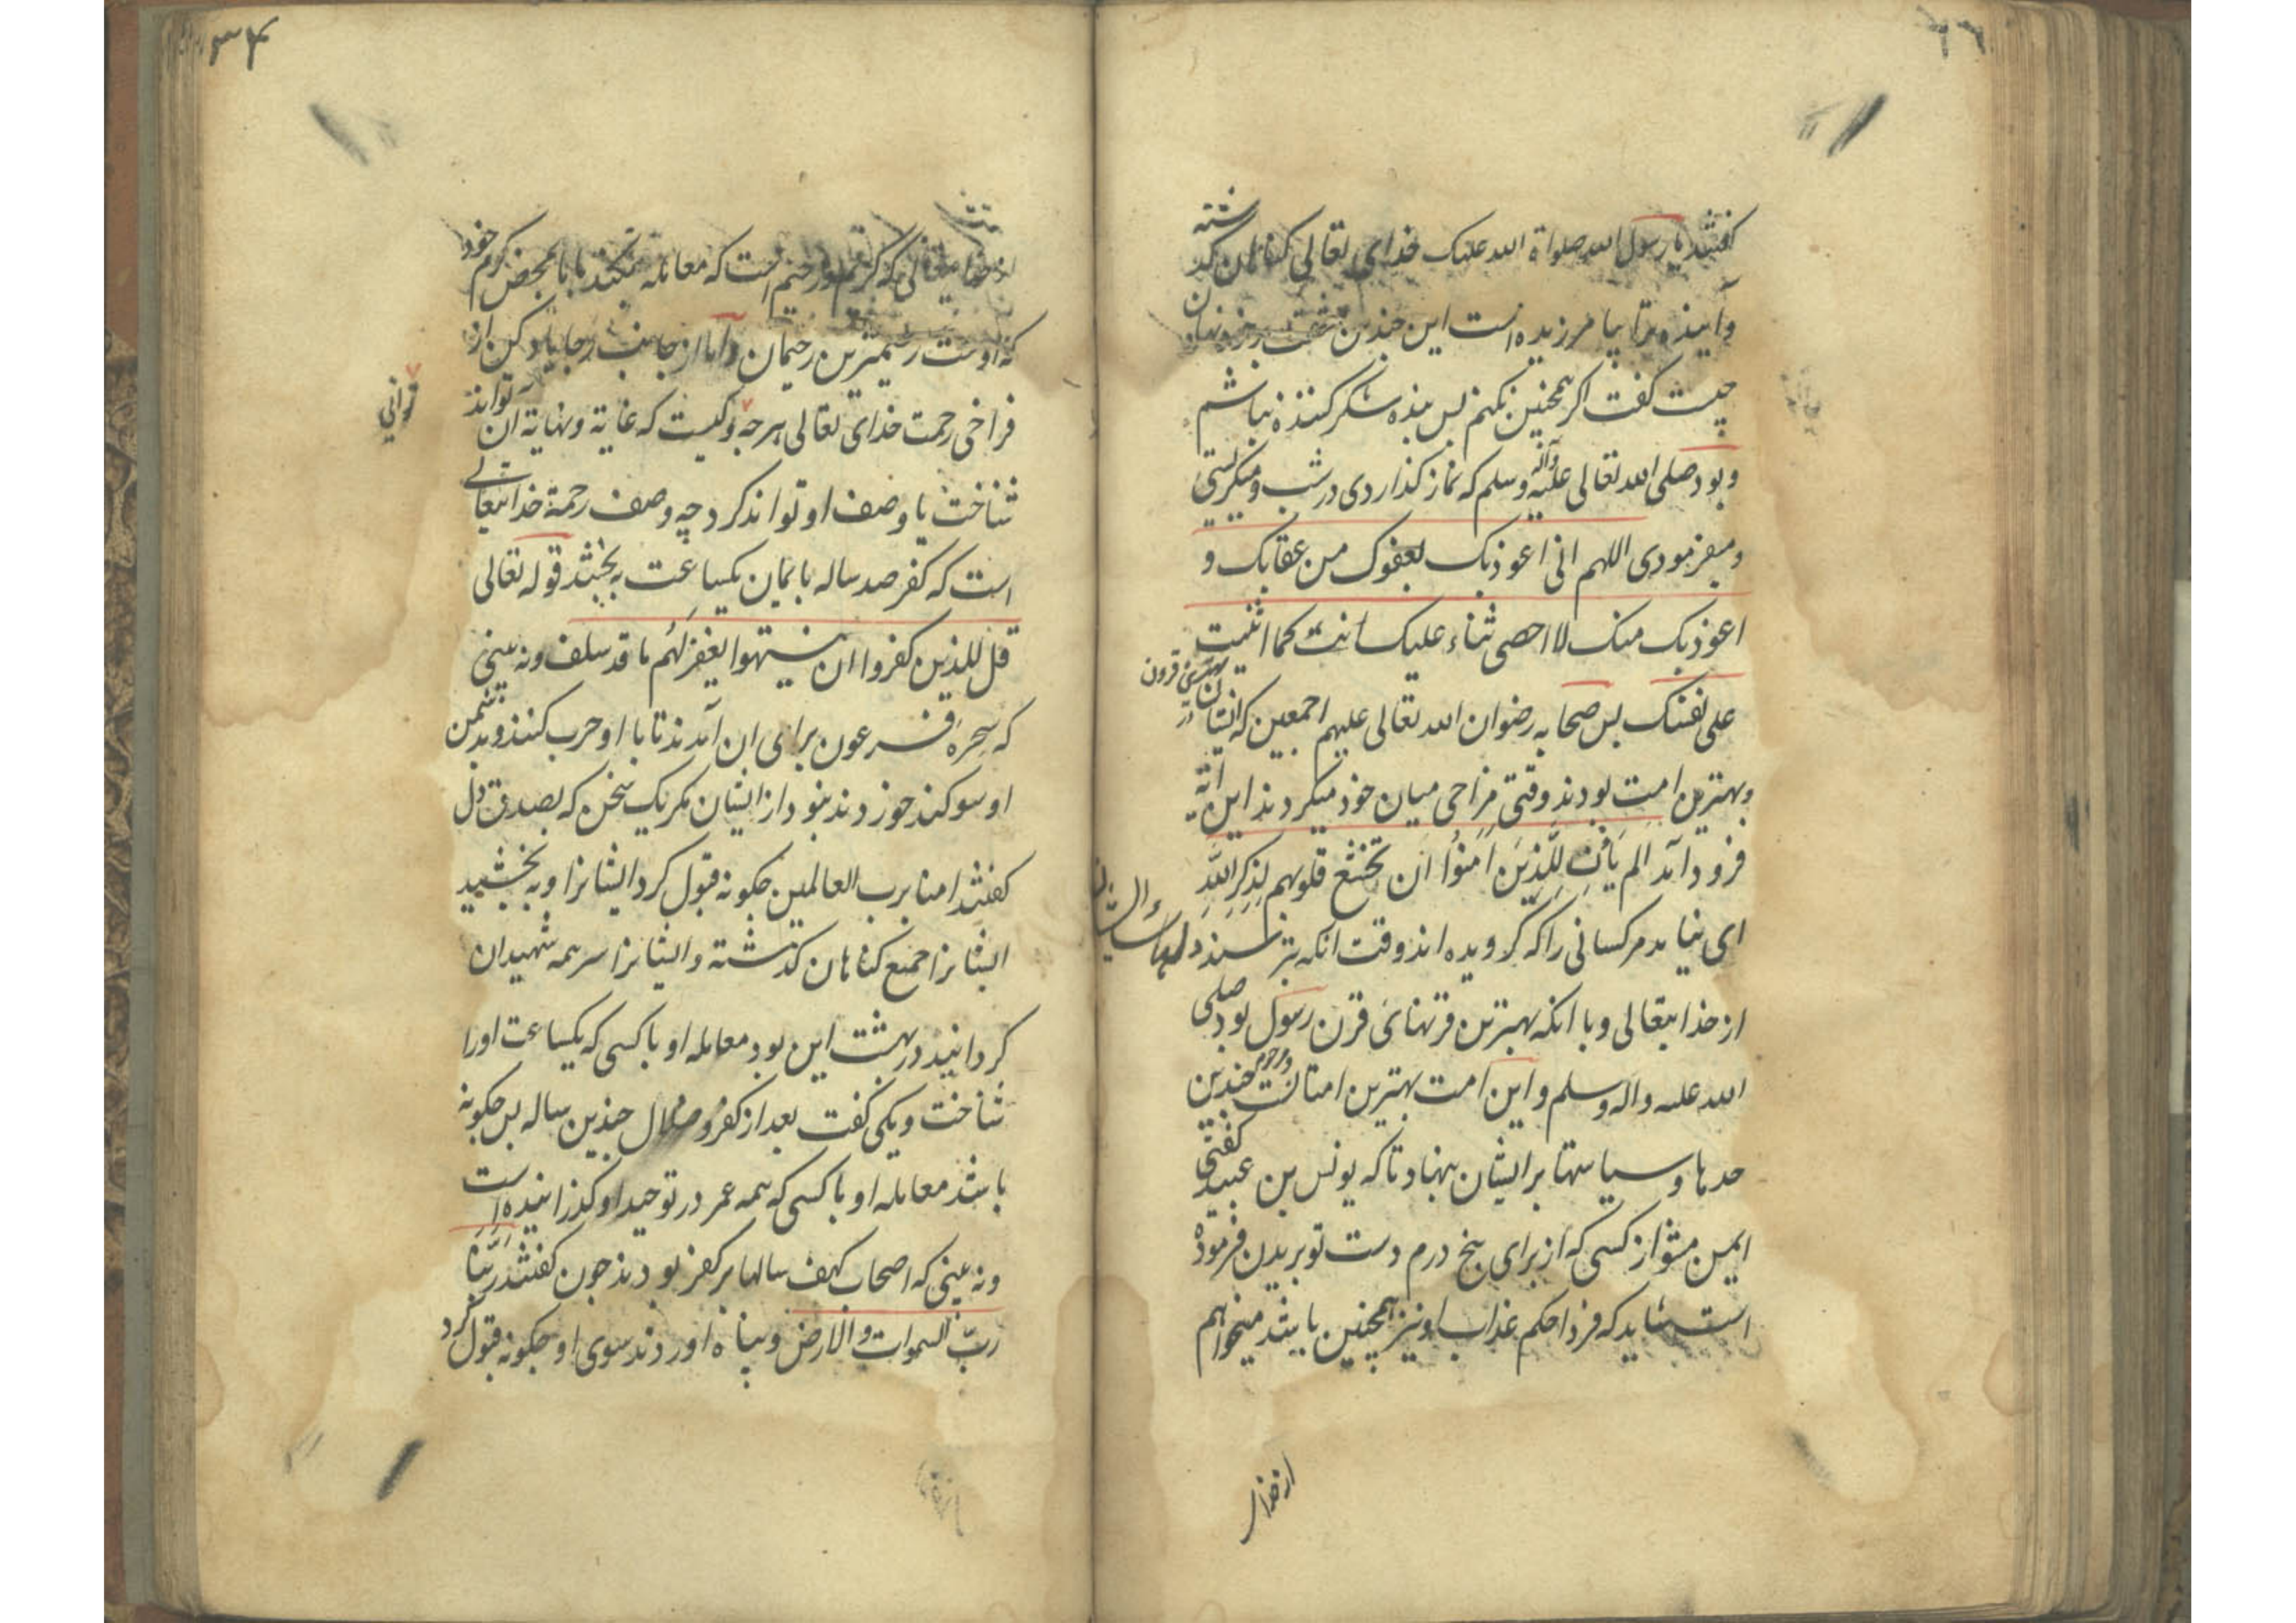 گفتند یا رسول الله صلواة الله علیک خدای تعالی گناهان گذشته
و آینده ترا بیامرزیده است این چندین
چیست گفت اگر همچنین نکنم پس بنده شکر کننده نباشم
و بود صلی الله تعالی علیه وآله وسلم که نماز گذاردی در شب و میگریستی
و میفرمودی اللهم انی اعوذ بک بعفوک من عقابک و
اعوذ بک منک لا احصی ثناء علیک انت کما اثنیت
علی نفسک پس صحابه رضوان الله تعالی علیهم اجمعین که ایشان در بهترین قرون
و بهترین امت بودند وقتی مزاحی میان خود میکردند این آیة
فرود آمد الم یَأنِ لِلَّذِینَ اٰمَنُوا اَن تخشع قلوبهم لِذِکرِ اللّٰهِ
ای نیامد مر کسانی را که گرویده اند وقت آنکه بترسند دلهاء ایشان
از خدایتعالی و با آنکه بهترین قرنهای قرن رسول بود صلی
الله علیه وآله وسلم و این امت بهترین امتانست و مرحوم چندین
حدها و سیاستها بر ایشان بنهاد تا که یونس بن عبید گفتی
ایمن مشو از کسی که از برای پنج درم دست تو بریدن فرموده
است شاید که فردا حکم عذاب او نیز همچنین باشد میخواهم
از خدا
۳۴
از خدایتعالی که کریم و رحیم است که معامله نکند با ما بمحض کرم خود
که اوست رحیمترین رحیمان و اما از جانب رجا یاد کن از
فراخی رحمت خدای تعالی هرچه و کیست که غایة و نهایة آن تواند
توانی
شناخت یا وصف او تواند کرد چه وصف رحمة خدایتعالی
است که کفر صد ساله بایمان یکساعت به بخشد قوله تعالی
قل للذین کفروا ان ینتهوا یغفر لَهُم ما قد سلف و نه بینی
که سحرهٔ فرعون برای آن آمدند تا با او حرب کنند و بدشمن
او سوگند خوردند نبود از ایشان مگر یک سخن که بصدق دل
گفتند امنا برب العالمین چگونه قبول کرد ایشانرا و به بخشید
ایشانرا جمیع گناهان گذشته و ایشانرا سر همه شهیدان
گردانید در بهشت این بود معامله او با کسی که یکساعت او را
شناخت و یکی گفت بعد از کفر و ضلال چندین ساله پس چگونه
باشد معامله او با کسی که همه عمر در توحید او گذرانیده است
و نه بینی که اصحاب کهف سالها بر کفر بودند چون گفتند رَبَّنَا
ربّ السموات والارض و پناه اوردند سوی او چگونه قبول کرد